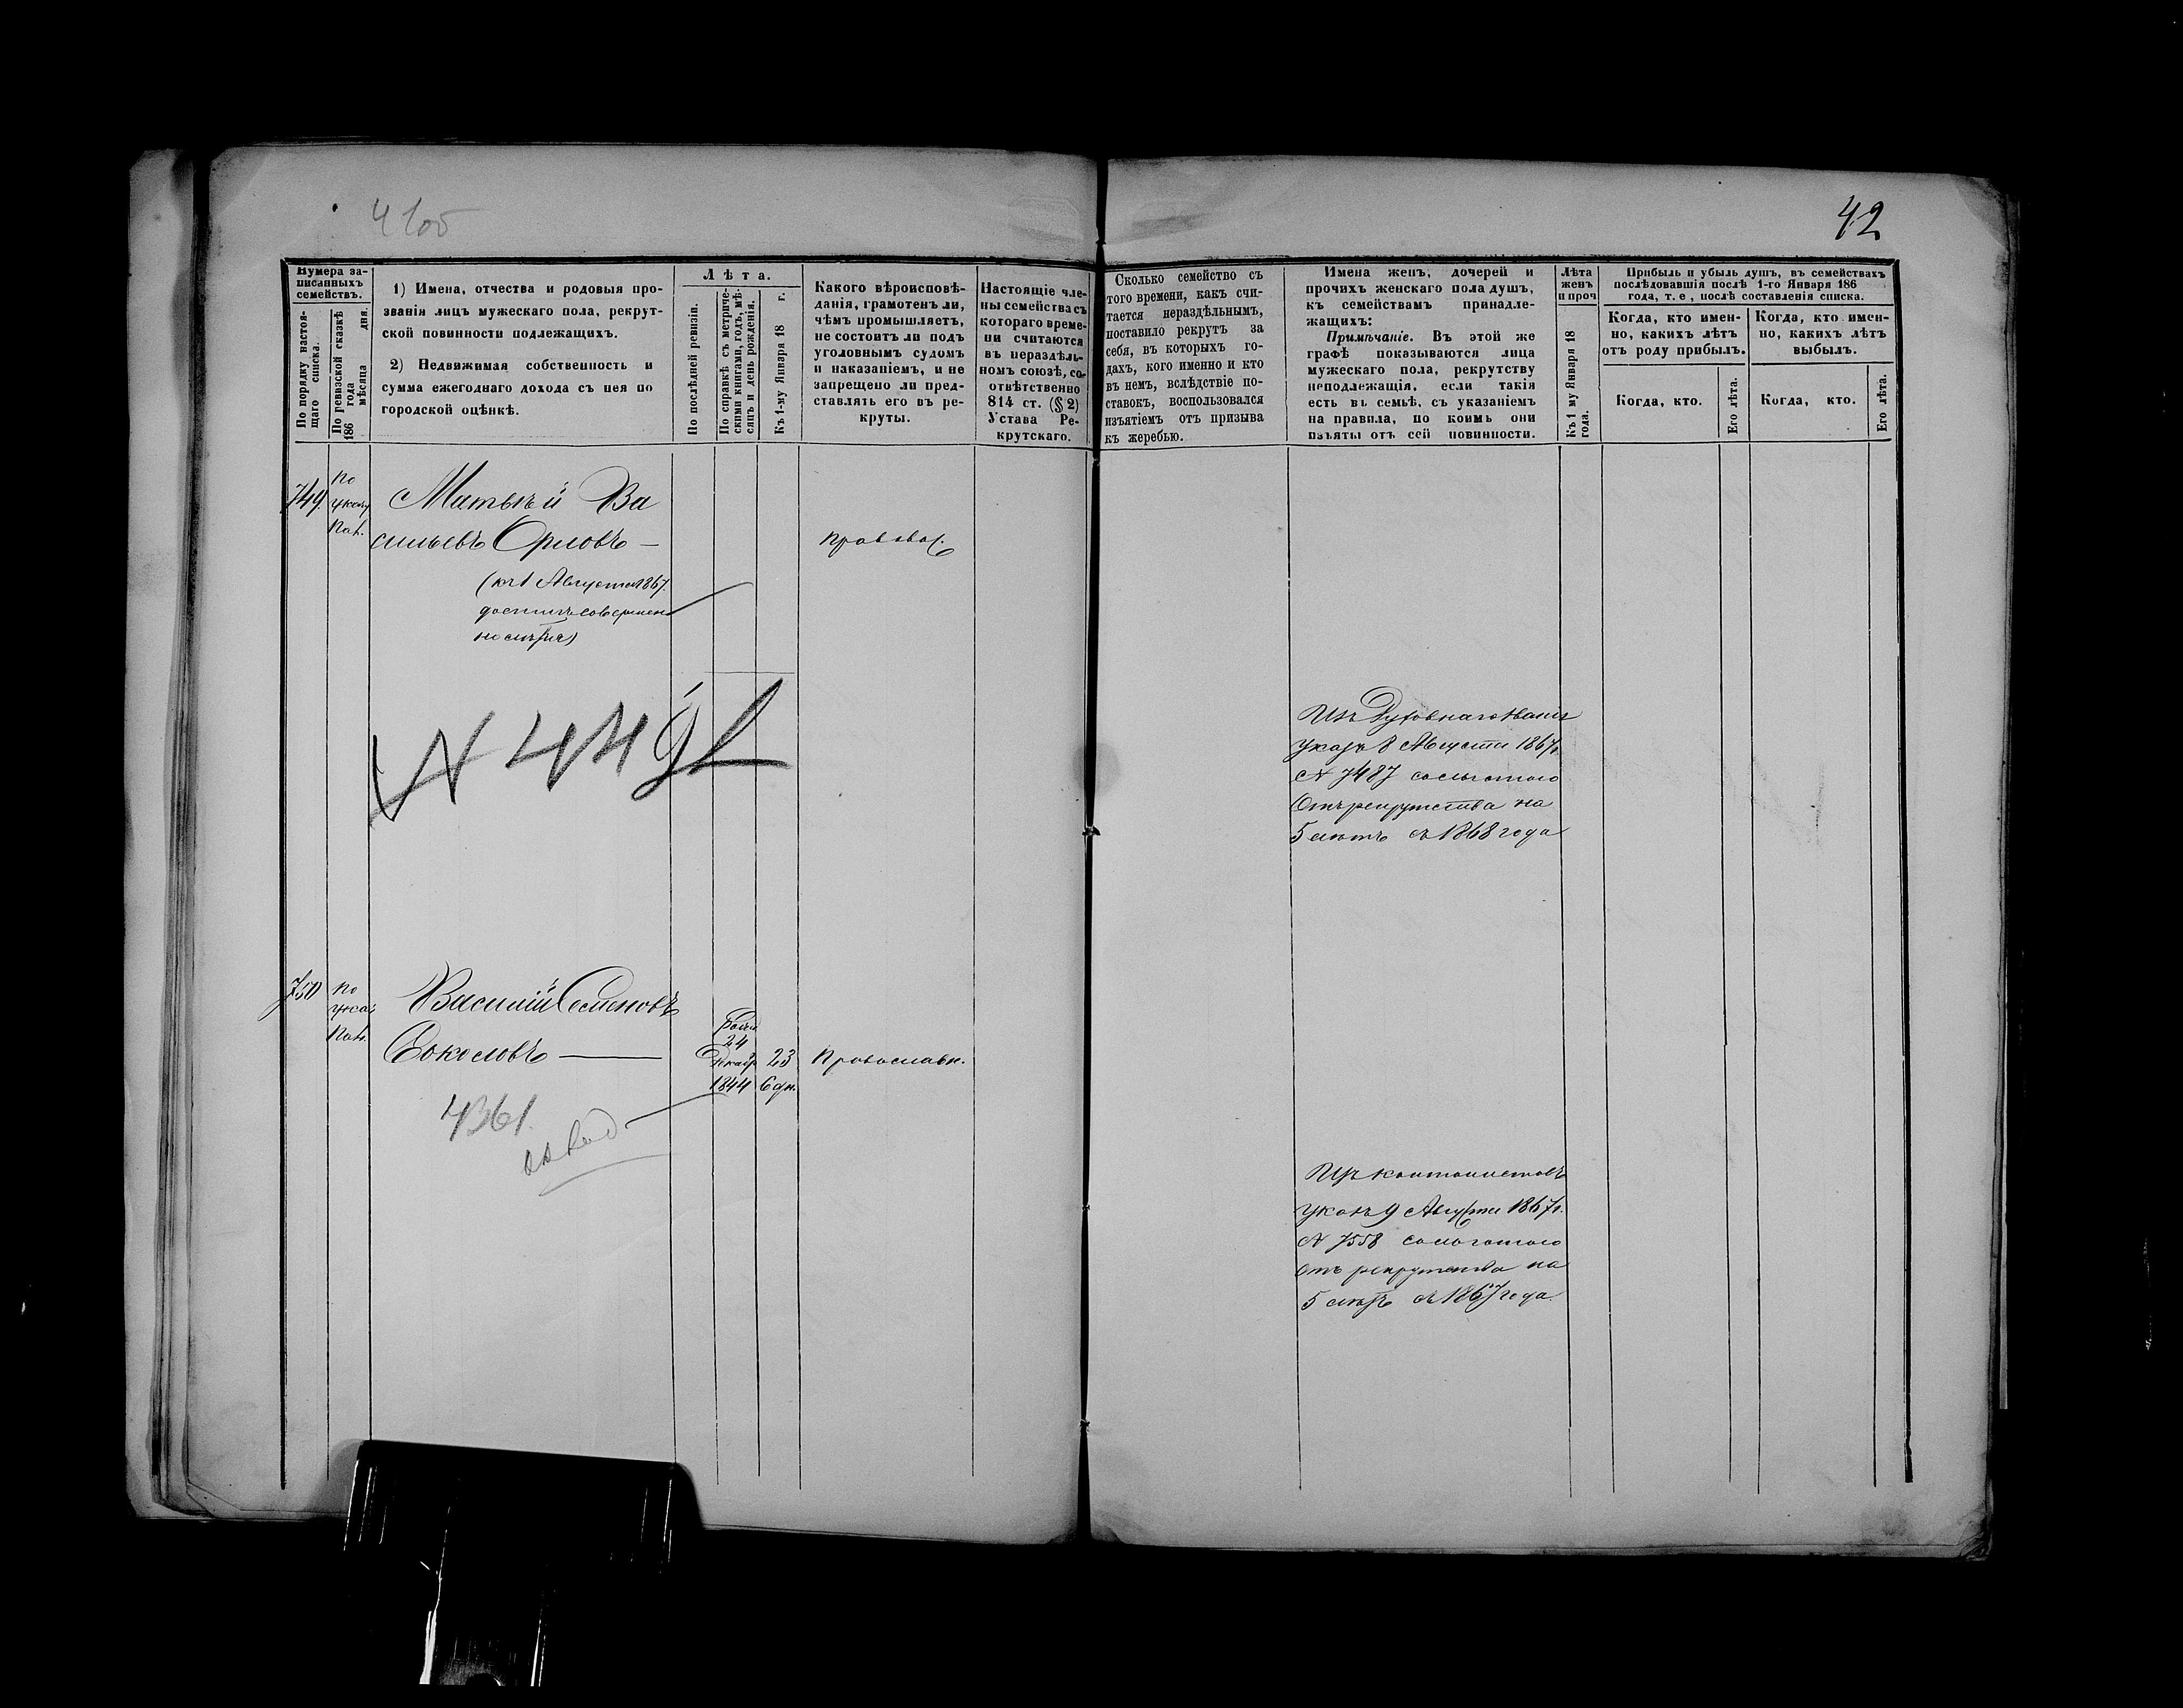 41об
42
Нумера за-
писанныхъ
семействъ.
По порядку настоя-
щаго списка.
По ревизской сказкѣ
186 года
мѣсяца дня.
1) Имена, отчества и родовыя про-
званія лицъ мужескаго пола, рекрут-
ской повинности подлежащихъ.
2) Недвижимая собственность и
сумма ежегоднаго дохода съ нея по
городской оцѣнкѣ.
Лѣта.
По послѣдней ревизіи.
По справкѣ съ метриче-
скими книгами, годъ, мѣ-
сяцъ и день рожденія.
Къ 1-му Января 18 г.
Какого вѣроисповѣ-
данія, грамотенъ ли,
чѣмъ промышляетъ,
не состоитъ ли подъ
уголовнымъ судомъ
и наказаніемъ, и не
запрещено ли пред-
ставлять его въ ре-
круты.
Настоящіе чле-
ны семейства съ
котораго време-
ни считаются
въ нераздѣль-
номъ союзѣ, со-
отвѣтственно
814 ст. (§ 2)
Устава Ре-
крутскаго.
Сколько семейство съ
того времени, какъ счи-
тается нераздѣльнымъ,
поставило рекрутъ за
себя, въ которыхъ го-
дахъ, кого именно и кто
въ немъ, вслѣдствіе по-
ставокъ, воспользовался
изъятіемъ отъ призыва
къ жеребью.
Имена женъ, дочерей и
прочихъ женскаго пола душъ,
къ семействамъ принадле-
жащихъ:
Примѣчаніе. Въ этой же
графѣ показываются лица
мужескаго пола, рекрутству
неподлежащія, если такія
есть въ семьѣ, съ указаніемъ
на правила, по коимъ они
изъяты отъ сей повинности.
Лѣта
женъ
и проч
Къ 1 му Января 18
года.
Прибыль и убыль душъ, въ семействахъ
послѣдовавшія послѣ 1-го Января 186
года, т. е., послѣ составленія списка.
Когда, кто имен-
но, какихъ лѣтъ
отъ роду прибылъ.
Когда, кто имен-
но, какихъ лѣтъ
выбылъ.
Когда, кто.
Его лѣта.
Когда, кто.
Его лѣта.
749.
по
указу
Пал.
Матвѣй Ва
сильевъ Орловъ —
(къ 1 Августа 1867.
достигъ совершен
нолѣтія)
Правосл.
N 4492
Изъ Духовнаго званія
указъ 8 Августа 1867г.
N 7487 со льготою
Отъ рекрутства на
5 лѣтъ съ 1868 года
750
по
указу
Пал.
Василій Семеновъ
Соколовъ —
24
Декабр
1844
23
6 дн.
Православн.
4361.
Изъ кантонистовъ
указъ 9 Августа 1867г.
N 7558 со льготою
Отъ рекрутства на
5 лѣтъ съ 1867 года.